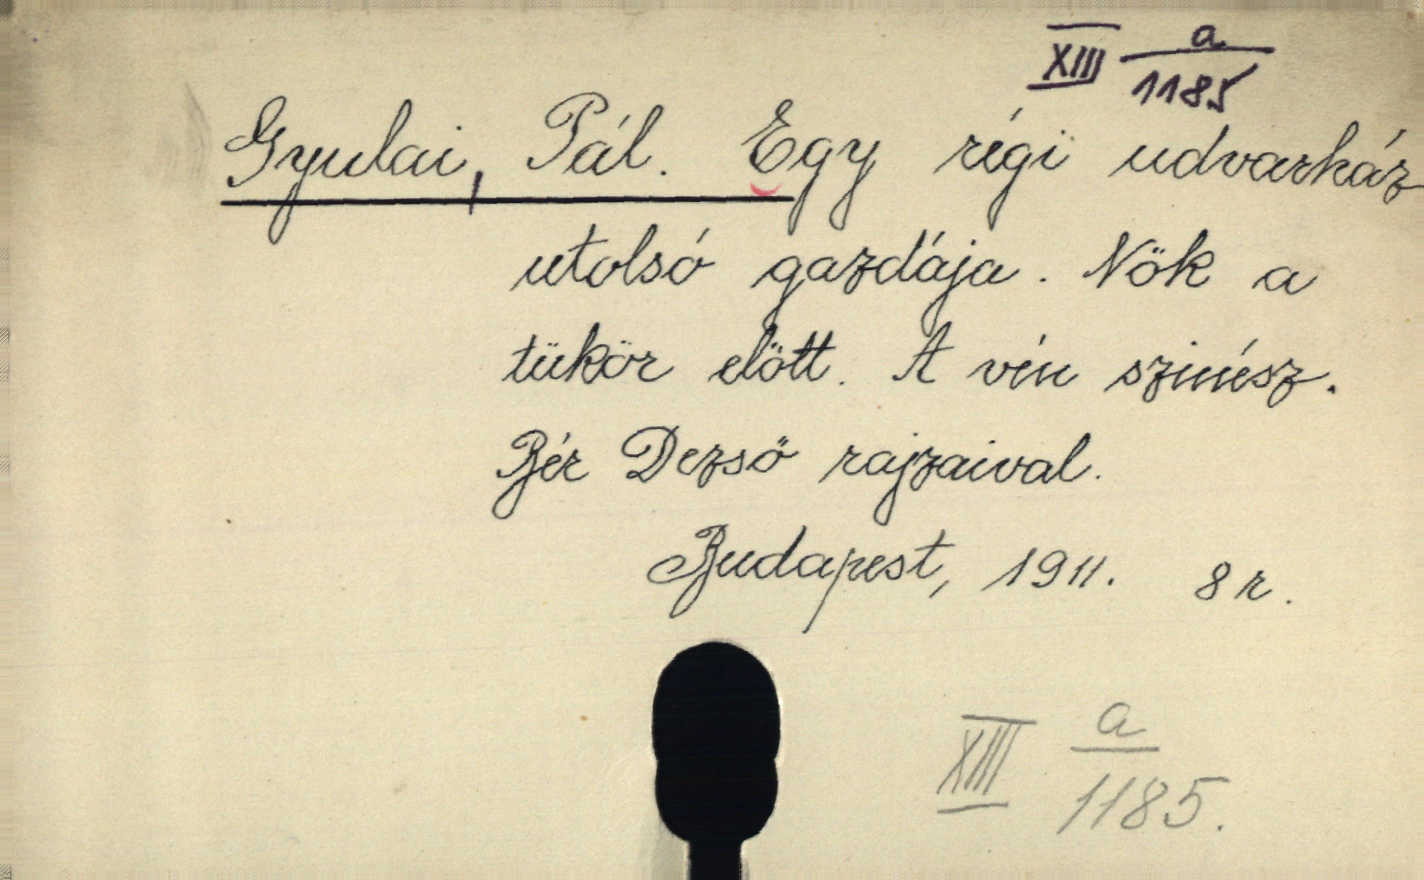 XIII a/1185
Gyulai, Pál. Egy régi udvarház
utolsó gazdája. Nők a
tükör előtt. A vén szinész.
Bér Dezső rajzaival.
Budapest, 1911. 8 r.
XIII a/1185.